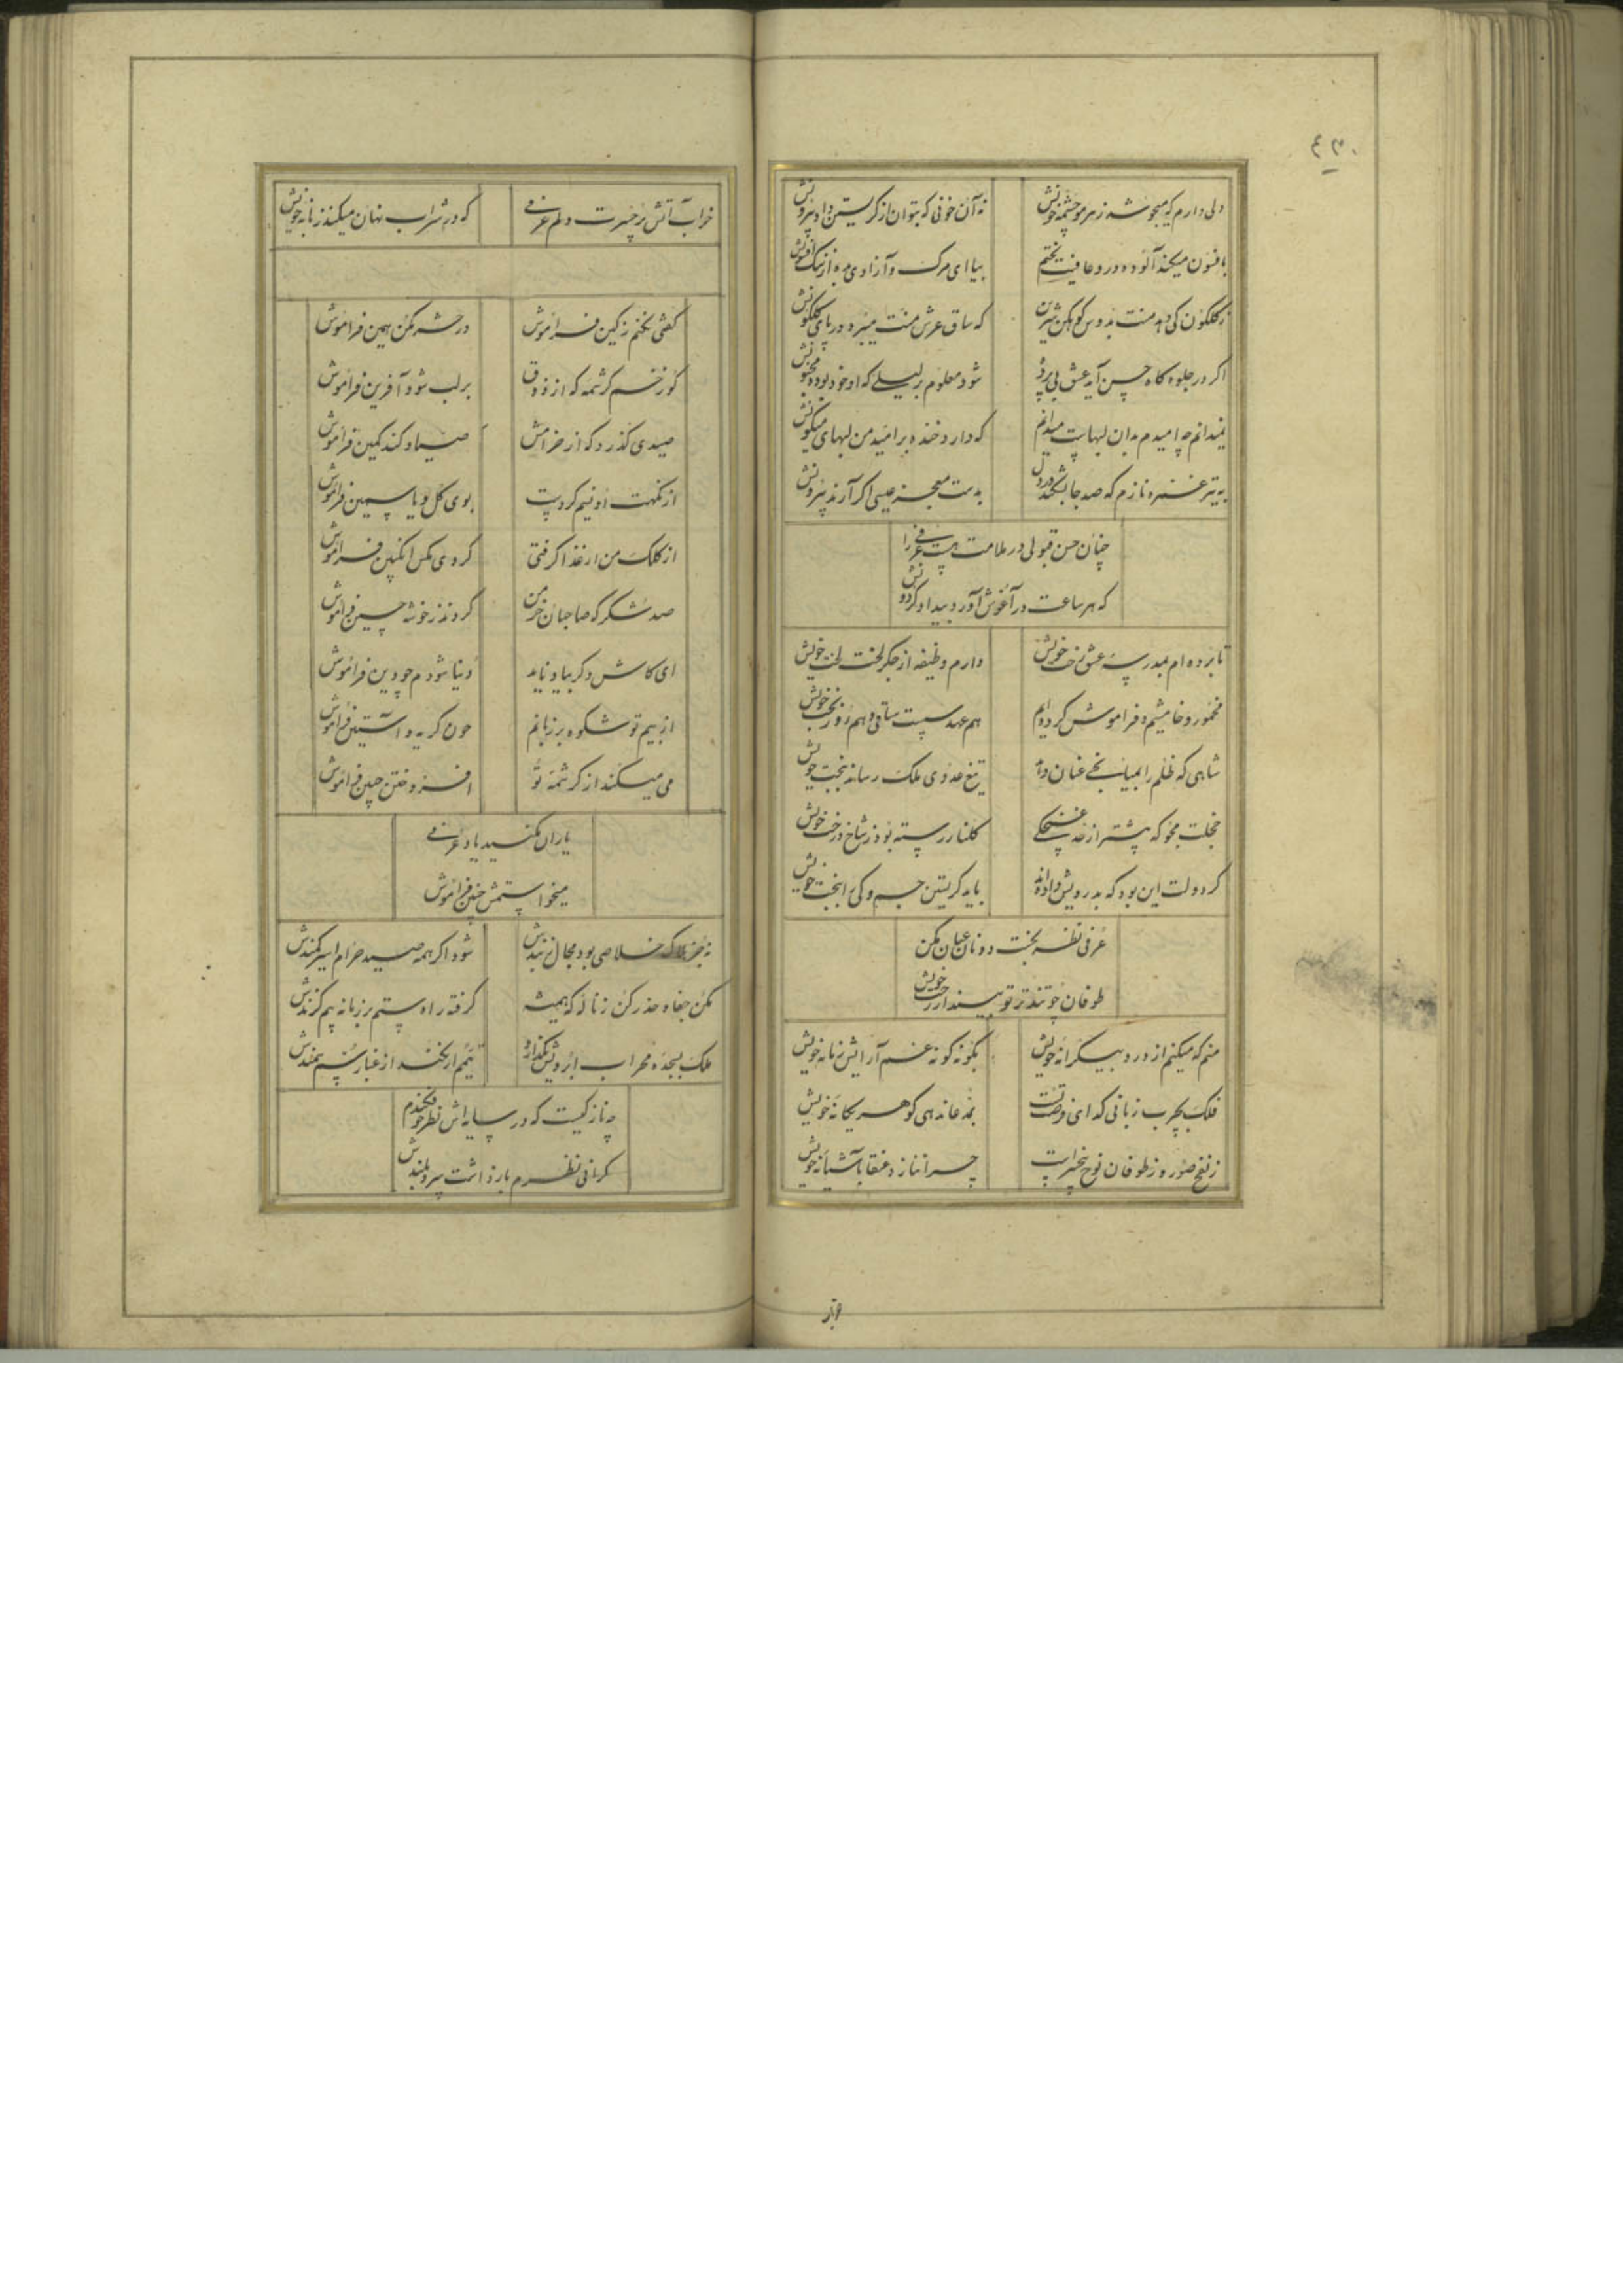 ۴۳۰
دلی دارم که میجوشد ز هر مو چشمهٔ خونش
نه آن خونی که بتوان از گریستن داد بیرونش
بافسون میکند آلوده درد عافیت بختم
بیا ای مرک و آزادی ده از ننک افسونش
ز گلگون کی دهد منت بدوس کوهکن شیرین
که ساق عرش منت میبرد در پای گلگونش
اگر در جلوه گاه حسن آید عشق بی پرده
شود معلوم بر لیلی که او خود بوده مجنونش
نمیدانم چه امیدم بدان لبهاست میدانم
که دارد خنده بر امید من لبهای میگونش
به تیر غمزه نازم که صد جا بشکند در دل
بدست معجز عیسی اگر آرند بیرونش
چنان حسن قبولی در ملامت هست عرفی را
که هر ساعت در آغوش آورد بیداد گردونش
تا برده ام بمدرسه عشق رخت خویش
دارم وظیفه از جگر لخت لخت خویش
مخمور و خامشیم و فراموش کرده ایم
هم عهد سست ساقی و هم روز بخت خویش
شاهی که ظلم را بمیانجی عنان دهد
تیغ عدوی ملک رساند بتخت خویش
خجلت مجو که پیشتر از غنچکی
گلنار رسته بود ز شاخ درخت خویش
گر دولت این بود که بدرویش داده اند
باید گریستن جم و کی را بتخت خویش
عرفی نظر ببخت دونان عیان مکن
طوفان چو تندتر تو بیندار رخت خویش
منم که میکنم از درد بیکرانه خویش
بگونه گونه غم آرایش زمانه خویش
فلک بچرب زبانی گدای فرصت تست
بمدعا ندهی گوهر یگانه خویش
ز نفخ صور و ز طوفان نوح بیخبر است
چرا ننازد عنقا بآشیانه خویش
خواب
خراب آتش رخسرت دلم عرفی
که در شراب نهان میکند زبانه خویش
گفتی نکنم ز کین فراموش
در حشر مکن همین فراموش
کو زخم کرشمه که از ذوق
بر لب شود آفرین فراموش
صیدی گذرد که از خرامش
صیاد کند کمین فراموش
از نکهت او نیم کردست
بوی گل و یاسمین فراموش
از کلک من ار غذا گرفتی
کردی مگس انگبین فراموش
صد شکر که صاحبان خرمن
کردند ز خوشه چین فراموش
ای کاش دگر بیاد ناید
دنیا شودم چو دین فراموش
از بیم تو شکوه بر زبانم
چون گریه در آستین فراموش
می میکند از کرشمه تو
افروختن جبین فراموش
یاران مکنید یاد عرفی
میخواستمش چنین فراموش
نه جز هلاک خلاصی بود مجال ز بندش
شود اگر همه صید حرم اسیر کمندش
مکن جفا و حذر کن ز ناله که همیشه
گرفته راه ستم بر زمانه بیم گزندش
ملک بسجده محراب ابرویش نگذارد
تیمم ار نکند از غبار سم سمندش
چه نازکیست که در سایه اش نظر چو فکندم
گرانی نظرم بازداشت سرو بلندش